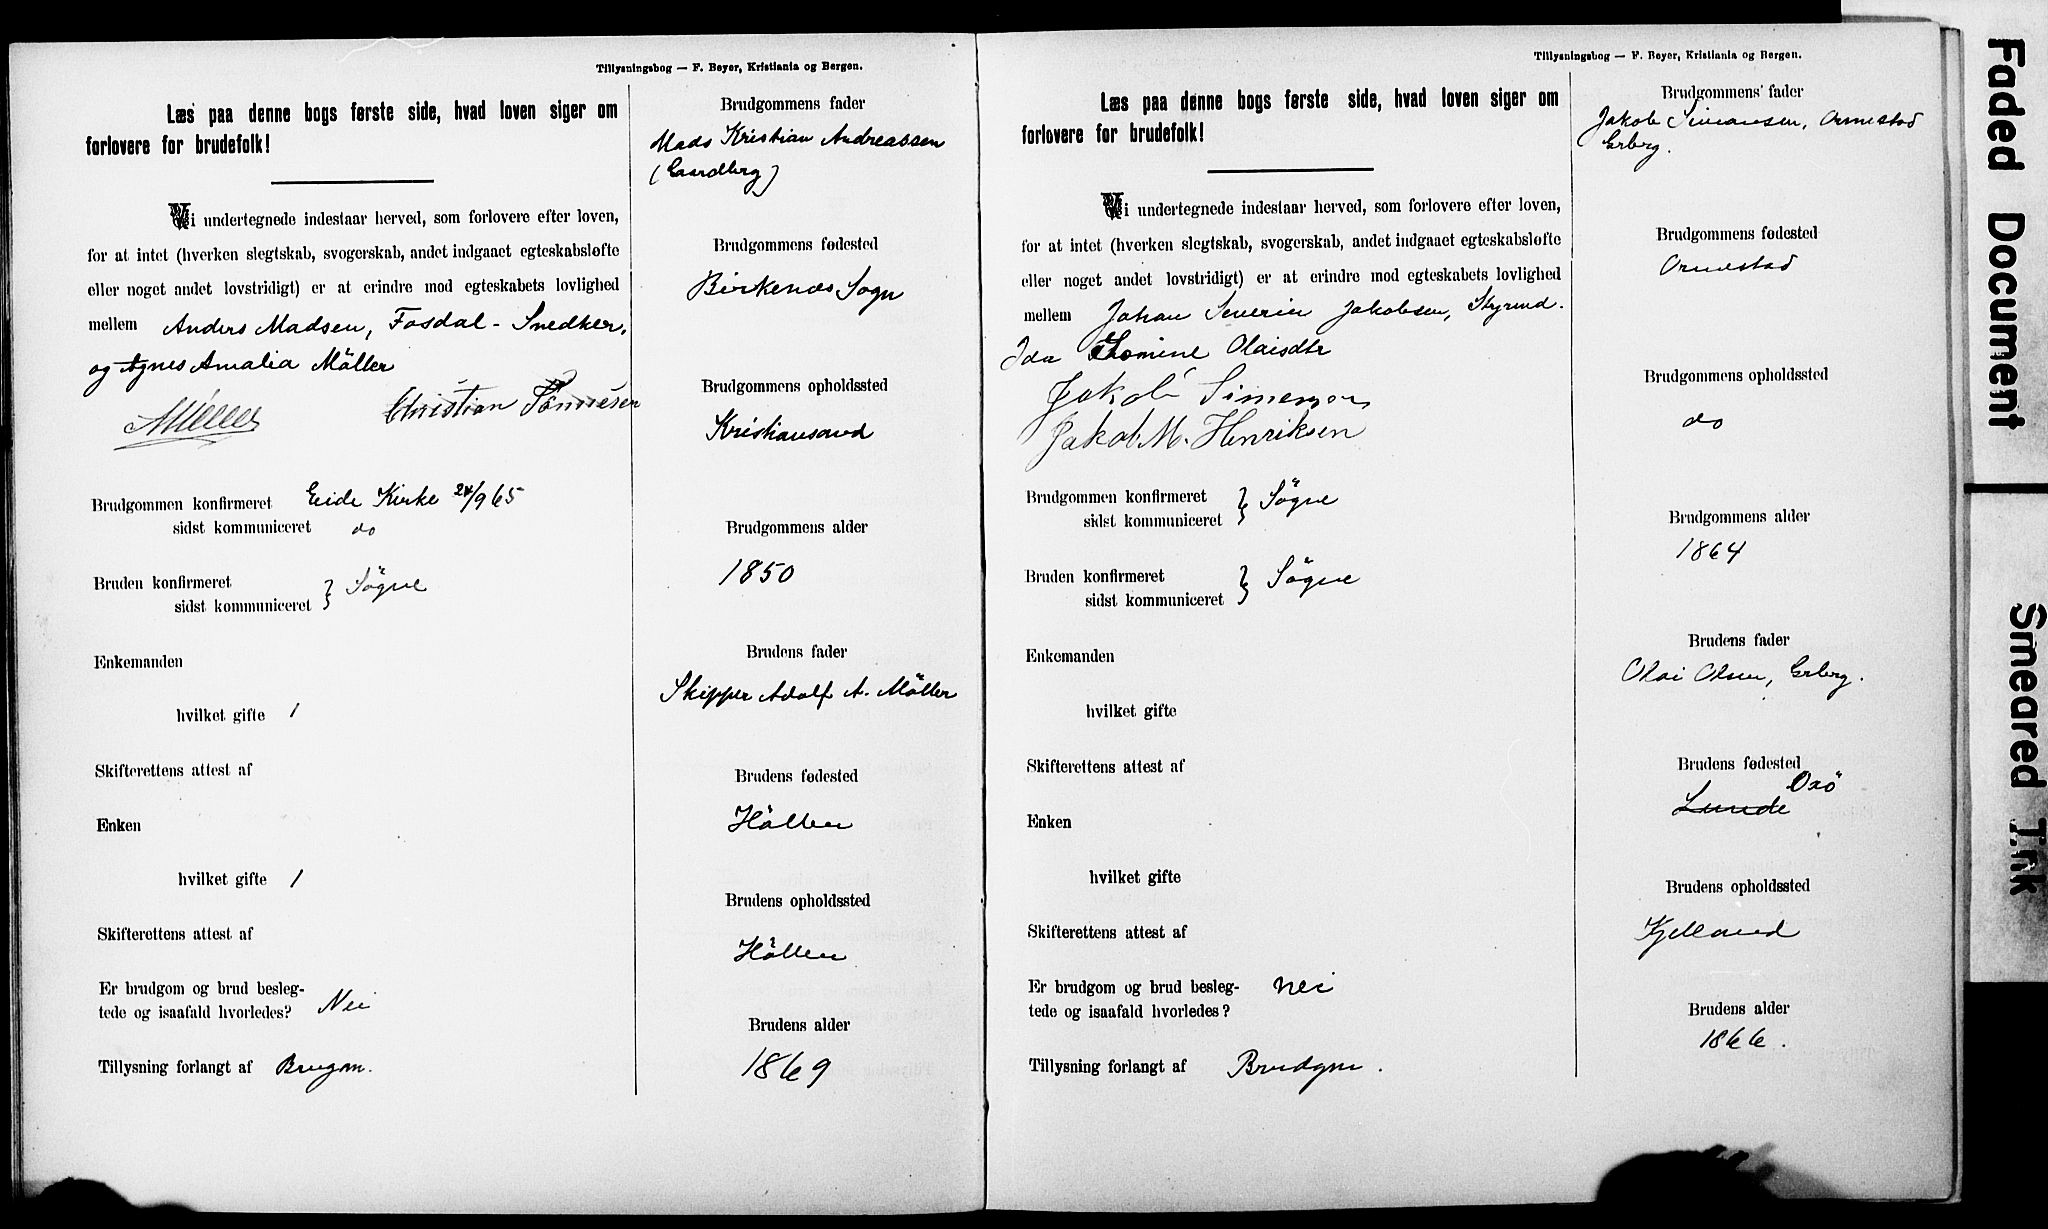 Tillysningsbog — F. Beyer, Kristiania og Bergen.
Læs paa denne bogs første side, hvad loven siger om
forlovere for brudefolk!
Vi undertegnede indestaar herved, som forlovere efter loven,
for at intet (hverken slegtskab, svogerskab, andet indgaaet egteskabsløfte
eller noget andet lovstridigt) er at erindre mod egteskabets lovlighed
mellem Anders Madsen, Fosdal - Snedker,
og Agnes Amalia Möller
AMöller Christian Tönnesen
Brudgommen konfirmeret Eide Kirke 24/9 65
sidst kommuniceret do
Bruden konfirmeret
sidst kommuniceret } Søgne
Enkemanden
hvilket gifte 1
Skifterettens attest af
Enken
hvilket gifte 1
Skifterettens attest af
Er brudgom og brud besleg-
tede og isaafald hvorledes? Nei
Tillysning forlangt af Brugom.
Brudgommens fader
Mads Kristian Andreassen
Brudgommens fødested
Birkenæs Sogn
Brudgommens opholdssted
Kristiansand
Brudgommens alder
1850
Brudens fader
Skipper Adolf A. Möller
Brudens fødested
Höllen
Brudens opholdssted
Höllen
Brudens alder
1869
Tillysningsbog — F. Beyer, Kristiania og Bergen.
Læs paa denne bogs første side, hvad loven siger om
forlovere for brudefolk!
Vi undertegnede indestaar herved, som forlovere efter loven,
for at intet (hverken slegtskab, svogerskab, andet indgaaet egteskabsløfte
eller noget andet lovstridigt) er at erindre mod egteskabets lovlighed
mellem Johan Severin Jakobsen, Styrmd.
Ida Tomine Olaisdtr
Jakob Simensen
Jakob M. Henriksen
Brudgommen konfirmeret
sidst kommuniceret } Søgne
Bruden konfirmeret
sidst kommuniceret } Søgne
Enkemanden
hvilket gifte
Skifterettens attest af
Enken
hvilket gifte
Skifterettens attest af
Er brudgom og brud besleg-
tede og isaafald hvorledes? nei
Tillysning forlangt af Brudgm.
Brudgommens fader
Jakob Simonsen, Ormestad
Grbrg.
Brudgommens fødested
Ormestad
Brudgommens opholdssted
do
Brudgommens alder
1864
Brudens fader
Olai Olsen, Grbrg.
Brudens fødested
Oxö
Lunde
Brudens opholdssted
Kjelland
Brudens alder
1866.
Faded Document
Smeared Ink